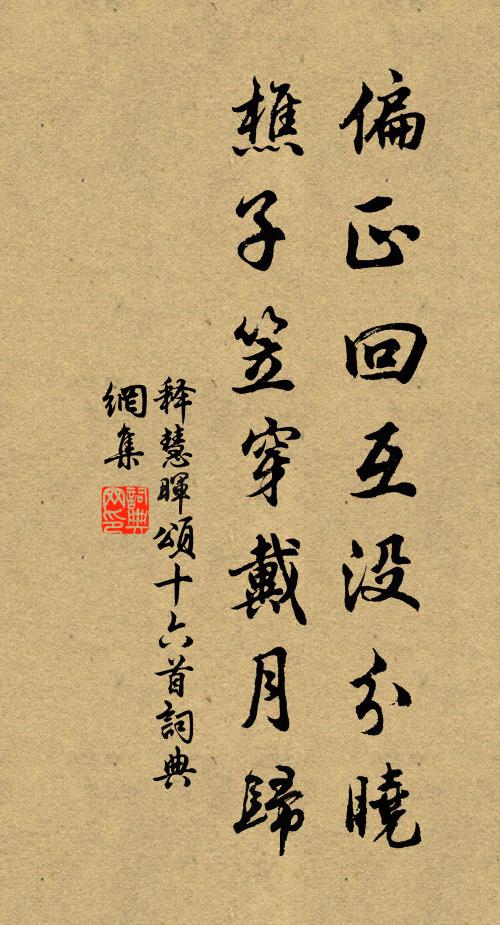 偏正回互没分曉
樵子笠穿戴月歸
释慧暉頌十六首詞典
網集
詞典網印